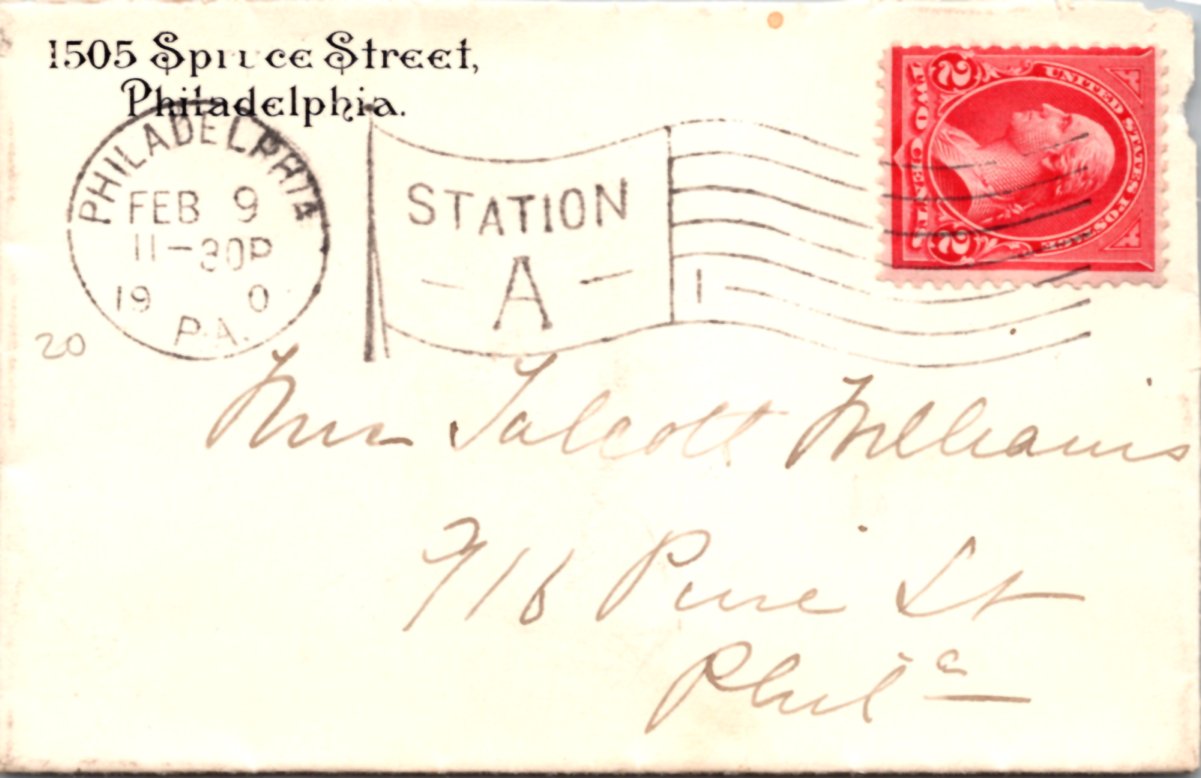 1505 Spruce Street,
Philadelphia.
PHILADELPHIA
FEB 9
11-30P
19 0
P.A.
STATION
A
1
UNITED STATES POSTAGE
TWO CENTS
2 2
20
Mrs Talcott Williams
916 Pine St
Phila